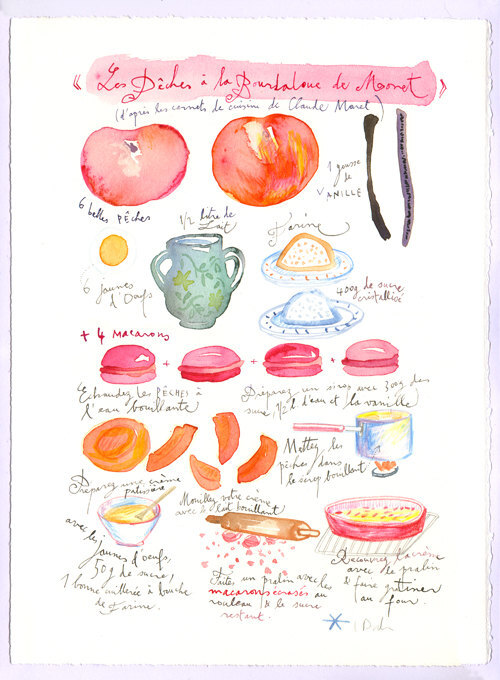 « Les Pêches à la Bourdaloue de Monet »
(d'après les carnets de cuisine de Claude Monet)
6 belles PÊCHES
1 gousse
de
VANILLE
1/2 litre de
Lait
Farine
6 jaunes
d'Oeufs
400g de sucre
cristallisé
+ 4 MACARONS
+ + +
Echaudez les PÊCHES à
l'eau bouillante
Préparez un sirop avec 300g de
sucre 1/2 l d'eau et la vanille
Mettez les
pêches dans
le sirop bouillant
Préparez une crème
patissière
avec les
jaunes d'oeufs,
50g de sucre,
1 bonne cuillerée à bouche
de farine.
Mouillez votre crème
avec le lait bouillant
Faites un pralin avec les
macarons écrasés au
rouleau & le sucre
restant.
Découvrez la crème
avec le pralin
& faire gratiner
au four.